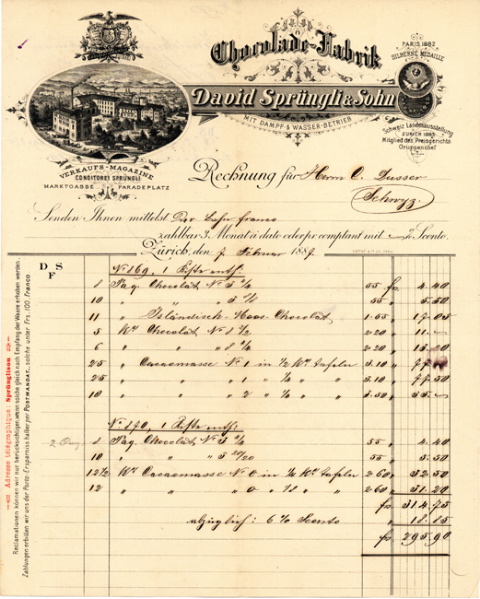 Chocolade-Fabrik
PARIS 1882
SILBERNE MEDAILLE
David Sprüngli & Sohn
MIT DAMPF & WASSER-BETRIEB
Schweiz. Landesausstellung
ZÜRICH 1883
Mitglied des Preisgerichts
Gruppenchef
VERKAUFS-MAGAZINE
CONDITOREI SPRÜNGLI
MARKTGASSE PARADEPLATZ
Rechnung für Herrn C. Dusser
Schwyz
Senden Ihnen mittelst Per Bahn franco
zahlbar 3 Monat à dato oder pr. comptant mit % Sconto.
Zürich, den 7. Februar 1889.
D S
F
No 169, 1 Kiste enth:
8 Paq. Chocolat, No 5 55 fs. 4.40
10 " " 5 55 " 5.50
11 " Isländisch-Moos-Chocolat, 1.65 " 17.05
5 Ko Chocolat, No 8 2.20 " 11.—
6 " " 9
25 " Cacaomasse No 1 in 1/2 Ko tafeln 3.10 " 77.50
25 " " 1 " " " 3.10 " 77.50
10 " " 2 " " "
No 170, 1 Kiste enth:
8 Paq. Chocolat, No 5 55 " 4.40
10 " " 5 55 " 5.50
12 1/2 Ko Cacaomasse No 0 in Ko tafeln 2.60 " 32.50
12 " " 0 " " " 2.60 " 31.20
fs. 314.75
abzüglich: 6% Sconto " 18.85
fs. 295.90
Adresse télégraphique: Sprünglison
Reclamationen können wir nur berücksichtigen, wenn solche gleich nach Empfang der Waare erhoben werden.
Zahlungen erbitten wir uns der Porto Ersparniss halber per POSTMANDAT, solche unter Frs. 100. franco